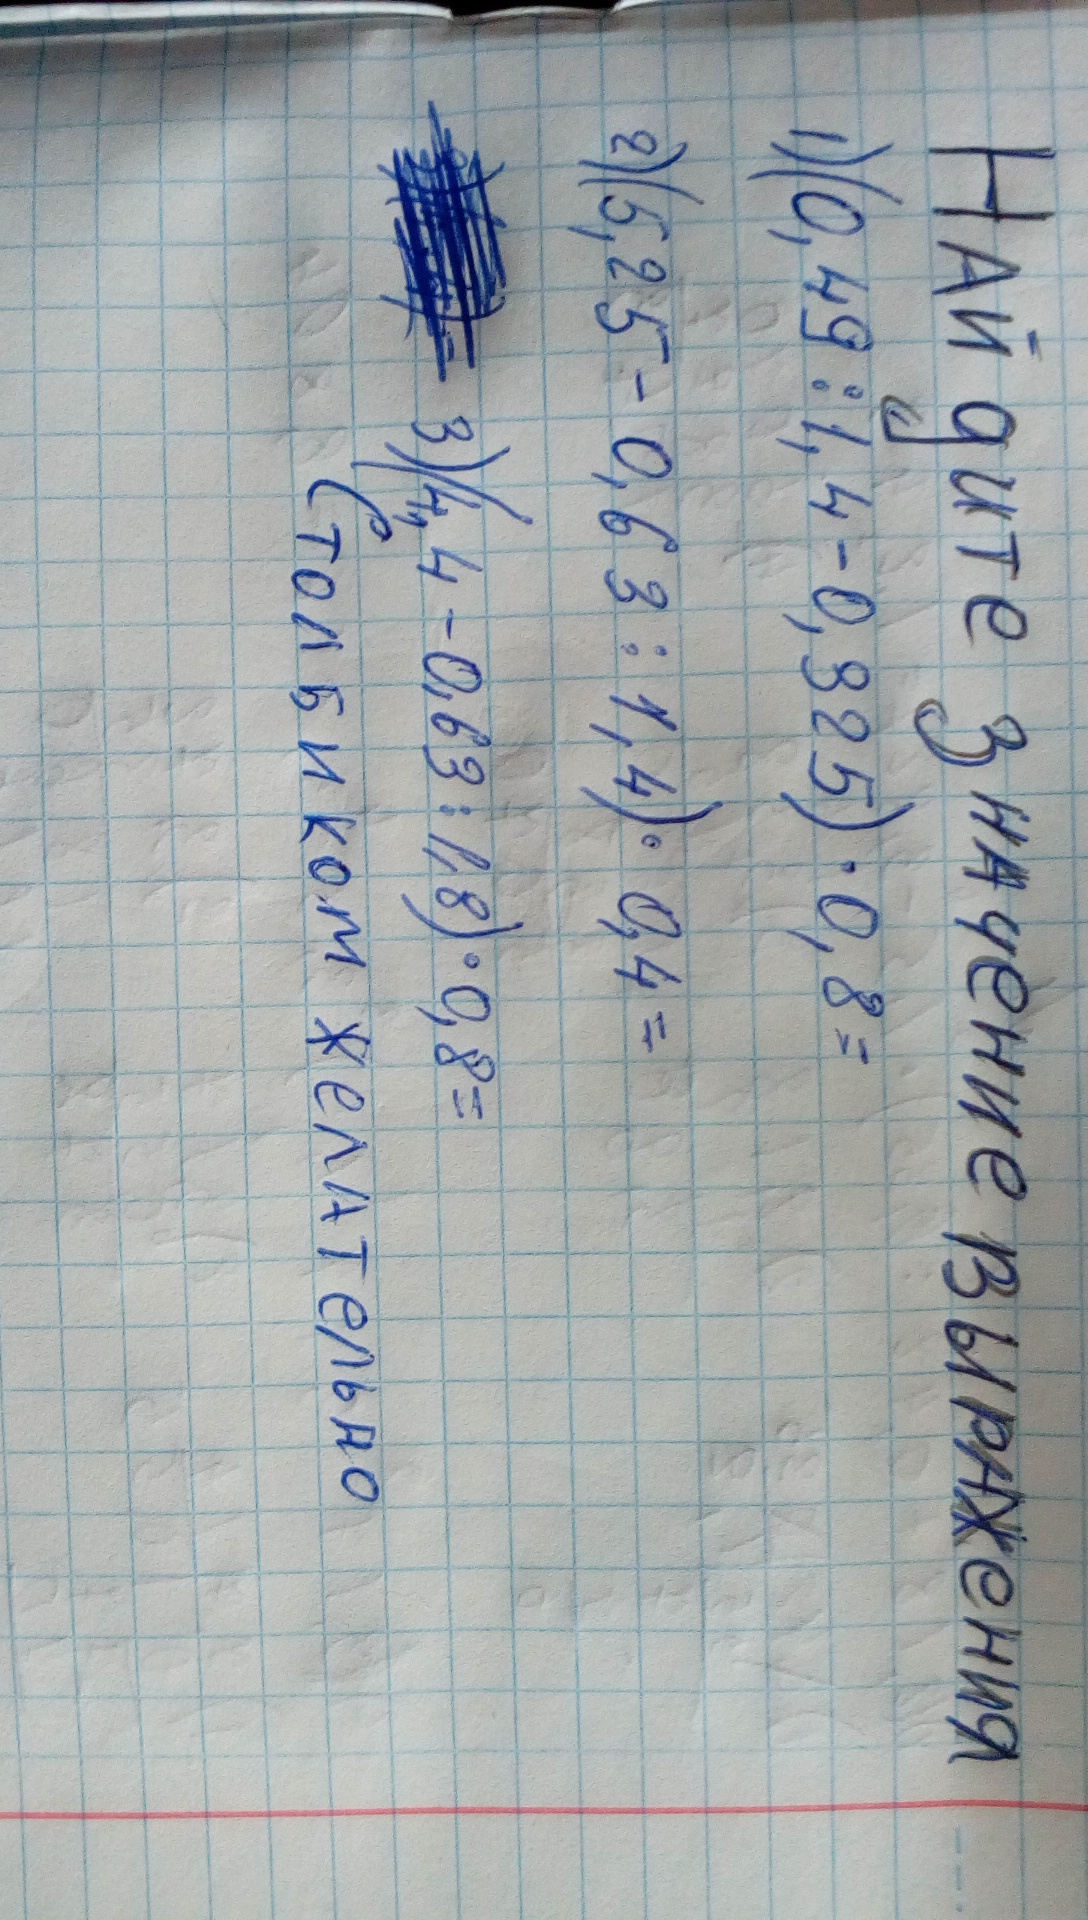 Найдите значение выражения
1) (0,49:1,4-0,325)·0,8=
2) (5,25-0,63:1,4)·0,4=
3) (4,4-0,63:1,8)·0,8=
Столбиком желательно